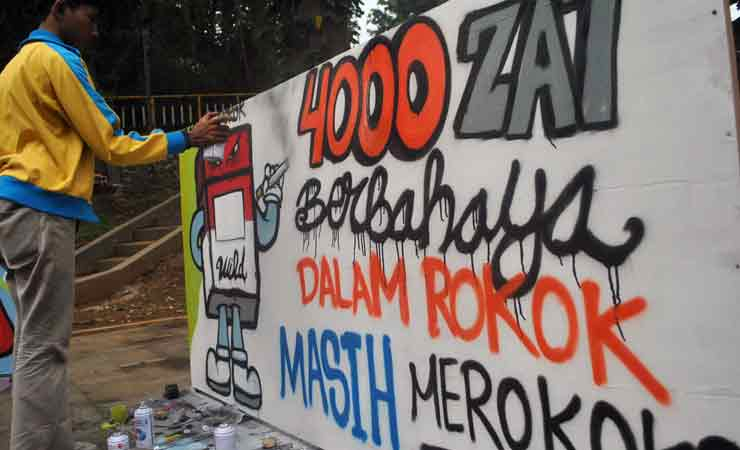 4000 ZAT
Berbahaya
DALAM ROKOK
MASIH MEROKOK